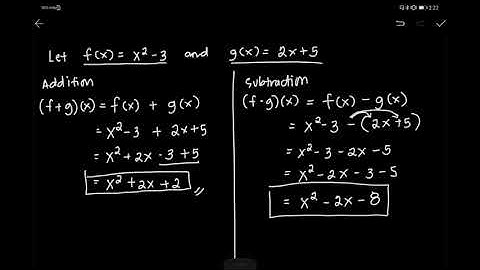 2:22
Let f(x) = x² - 3 and g(x) = 2x + 5
Addition
(f+g)(x) = f(x) + g(x)
= x² - 3 + 2x + 5
= x² + 2x - 3 + 5
= x² + 2x + 2
Subtraction
(f-g)(x) = f(x) - g(x)
= x² - 3 - (2x + 5)
= x² - 3 - 2x - 5
= x² - 2x - 3 - 5
= x² - 2x - 8